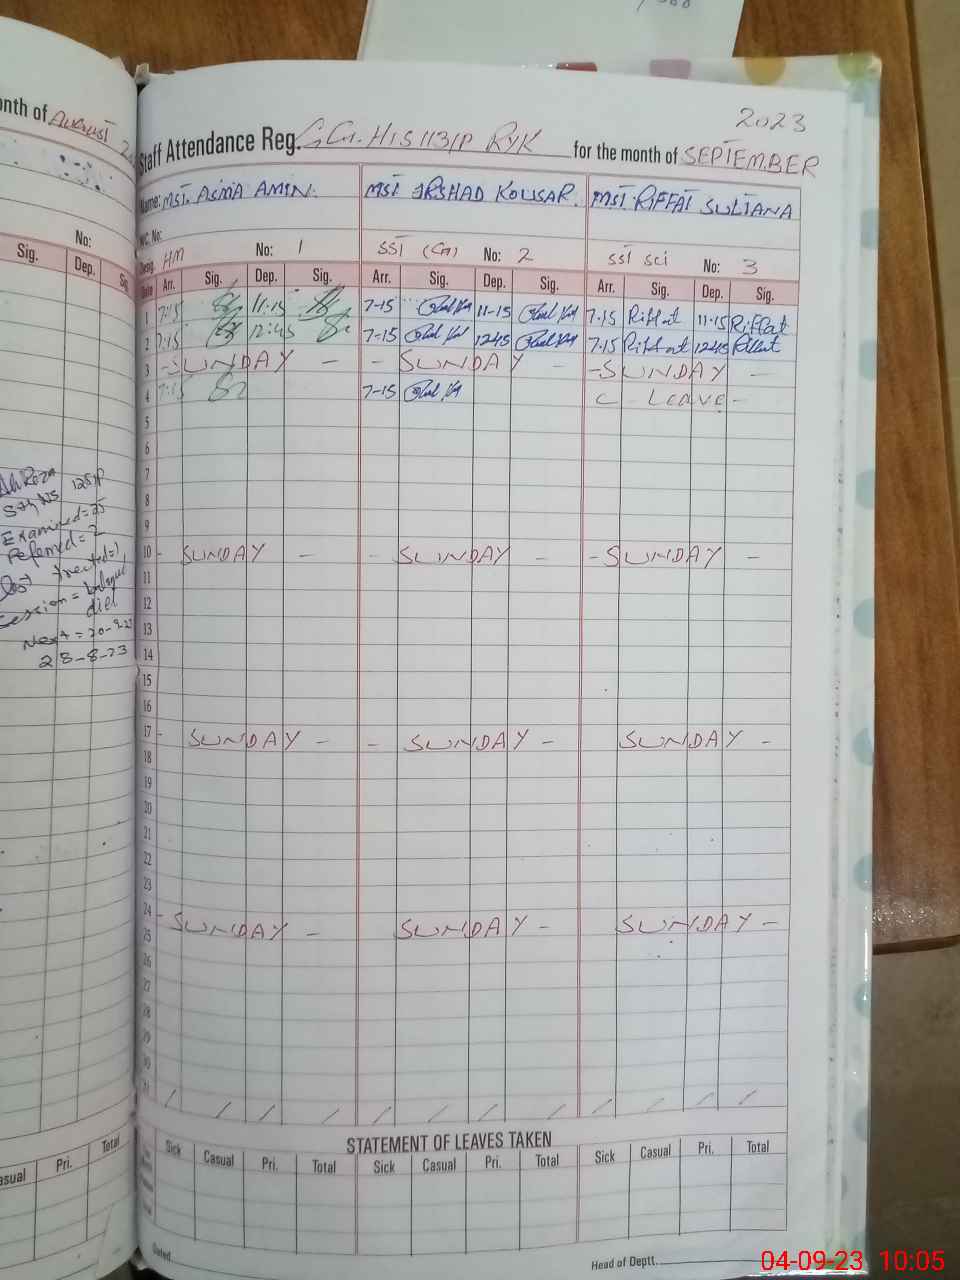 onth of August
No:
Sig. Dep. Sig.
125/P
Examined = 25
Referred = 2
treated = 1
Session =
diet
Next = 20-9-23
28-8-23
Total
Pri.
asual
2023
Staff Attendance Reg. G.G.HIS 113/P RYK for the month of SEPTEMBER
Name: MST. ASMA AMIN. MST IRSHAD KOUSAR. MST. RIFFAT SULTANA
NIC. No:
Desig. HM No: 1 SST (Gn) No: 2 SST Sci No: 3
Date Arr. Sig. Dep. Sig. Arr. Sig. Dep. Sig. Arr. Sig. Dep. Sig.
1 7:15 11:15 7-15 11-15 7.15 Riffat 11.15 Riffat
2 7:15 12:45 7-15 1245 7.15 Riffat 1245 Riffat
3 - SUNDAY - - SUNDAY - - SUNDAY -
4 7:15 7-15 C - Leave -
5
6
7
8
9
10 - SUNDAY - - SUNDAY - - SUNDAY -
11
12
13
14
15
16
17 - SUNDAY - - SUNDAY - SUNDAY -
18
19
20
21
22
23
24 - SUNDAY - SUNDAY - SUNDAY -
25
26
27
28
29
30
31 / / / / / / / / / / / /
STATEMENT OF LEAVES TAKEN
Sick Casual Pri. Total Sick Casual Pri. Total Sick Casual Pri. Total
Dated
Head of Deptt.
04-09-23 10:05